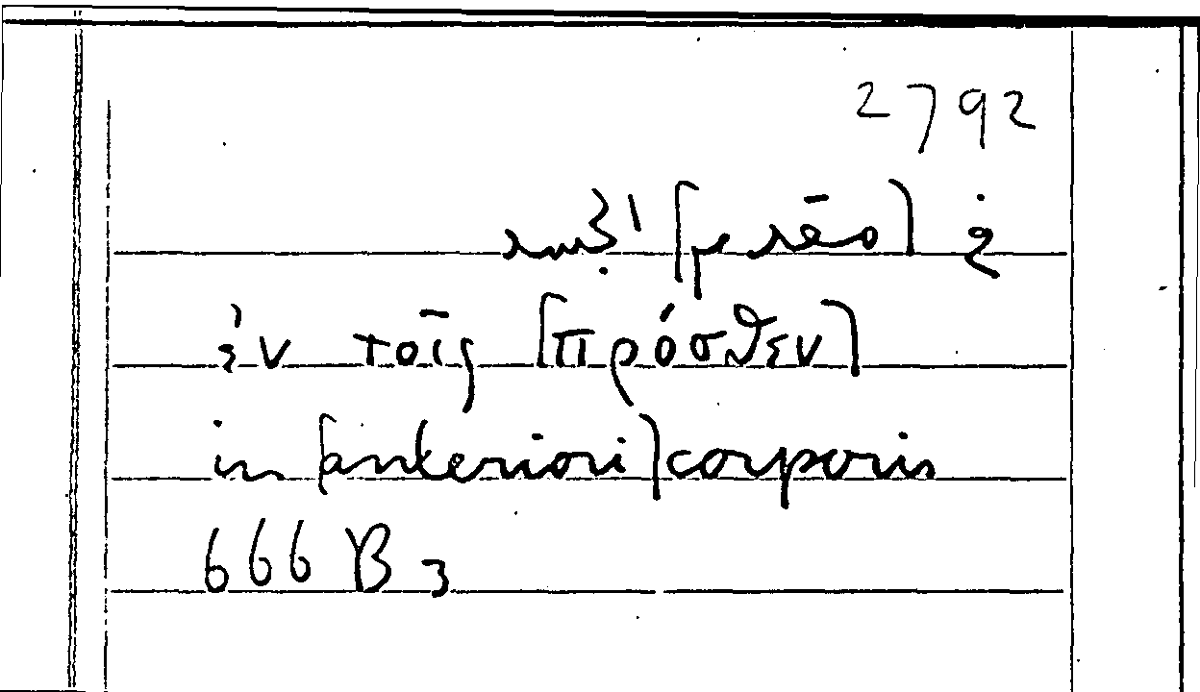 2792
في [مقدم] الجسد
ἐν τοῖς [πρόσθεν]
in [anteriori] corporis
666 B 3